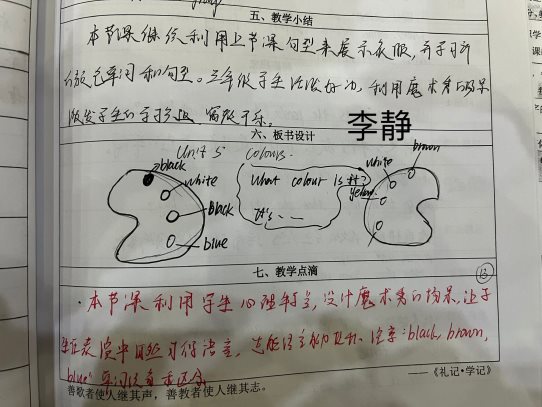 五、教学小结
本节课继续利用上节课句型来展示衣服，并学习新
的颜色单词和句型。三年级学生活泼好动，利用魔术秀的场景
激发学生的学习兴趣，寓教于乐。
六、板书设计
李静
Unit 5 colours.
black
white
Black
blue
What colour is it?
It's
white
brown
yellow
七、教学点滴
13
本节课利用学生心理特点，设计魔术秀的场景，让学
生在表演中自然习得语言，注意：black, brown,
blue 单词读音和区分
——《礼记·学记》
善歌者使人继其声，善教者使人继其志。